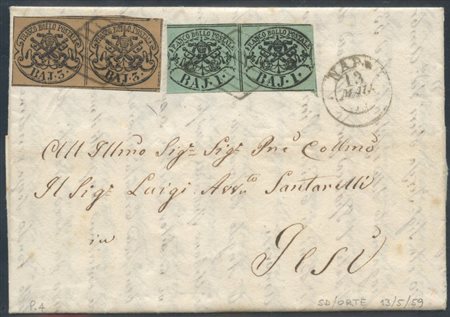 FRANCO BOLLO POSTALE FRANCO BOLLO POSTALE FRANCO BOLLO POSTALE FRANCO BOLLO POSTALE
BAJ.3. BAJ.3. BAJ.1. BAJ.1.
13
All Illmo Sigr Sigr Pne Collmo
Il Sigr Luigi Avvto Santarelli
in
Jesi
P.4 SD/ORTE 13/5/59